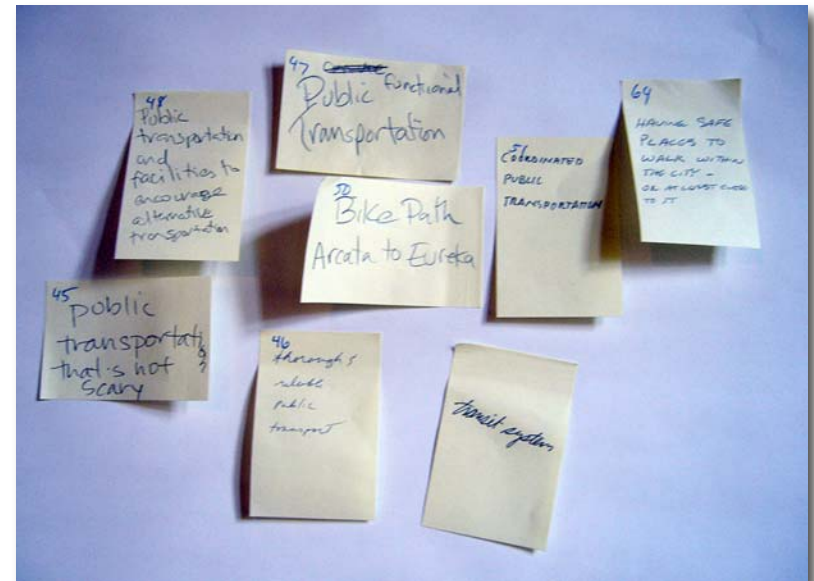 48
Public
transportation
and
facilities to
encourage
alternative
transportation
47
Public functional
Transportation
50
Bike Path
Arcata to Eureka
51
COORDINATED
PUBLIC
TRANSPORTATION
64
HAVING SAFE
PLACES TO
WALK WITHIN
THE CITY -
OR AT LEAST CLOSE
TO IT
45
public
transportation
that's not
scary
46
thorough &
reliable
public
transport
transit system